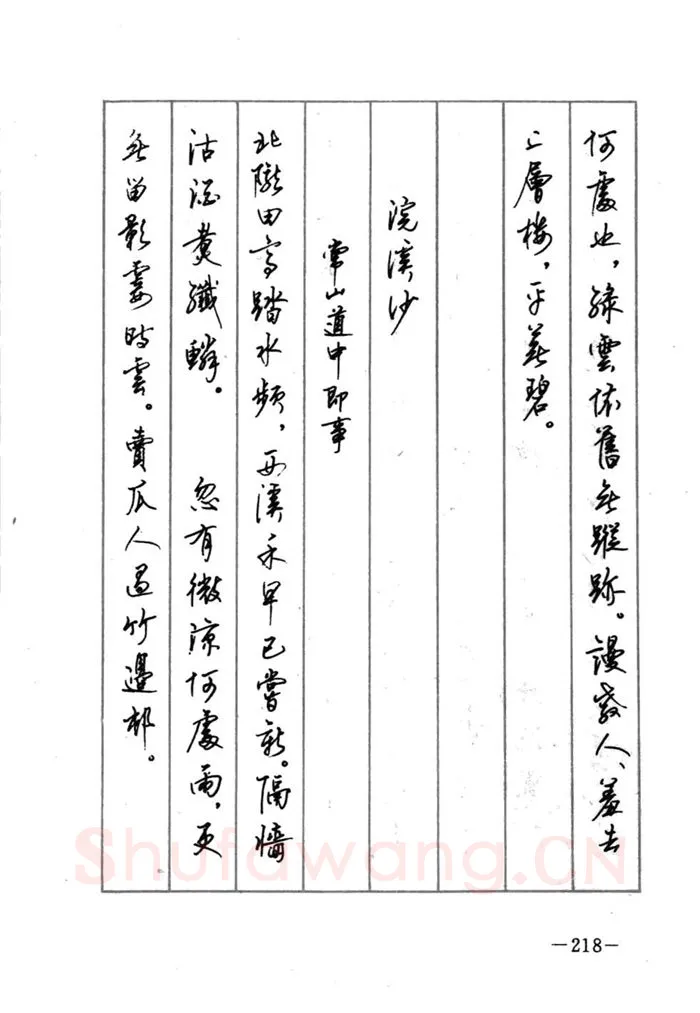 何處也，綠雲依舊無蹤跡。謾教人、羞去
上層樓，平蕪碧。
浣溪沙
常山道中即事
北隴田高踏水頻，西溪禾早已嘗新。隔牆
沽酒煮纖鱗。 忽有微涼何處雨，更
無留影霎時雲。賣瓜人過竹邊邨。
Shufawang.CN
—218—